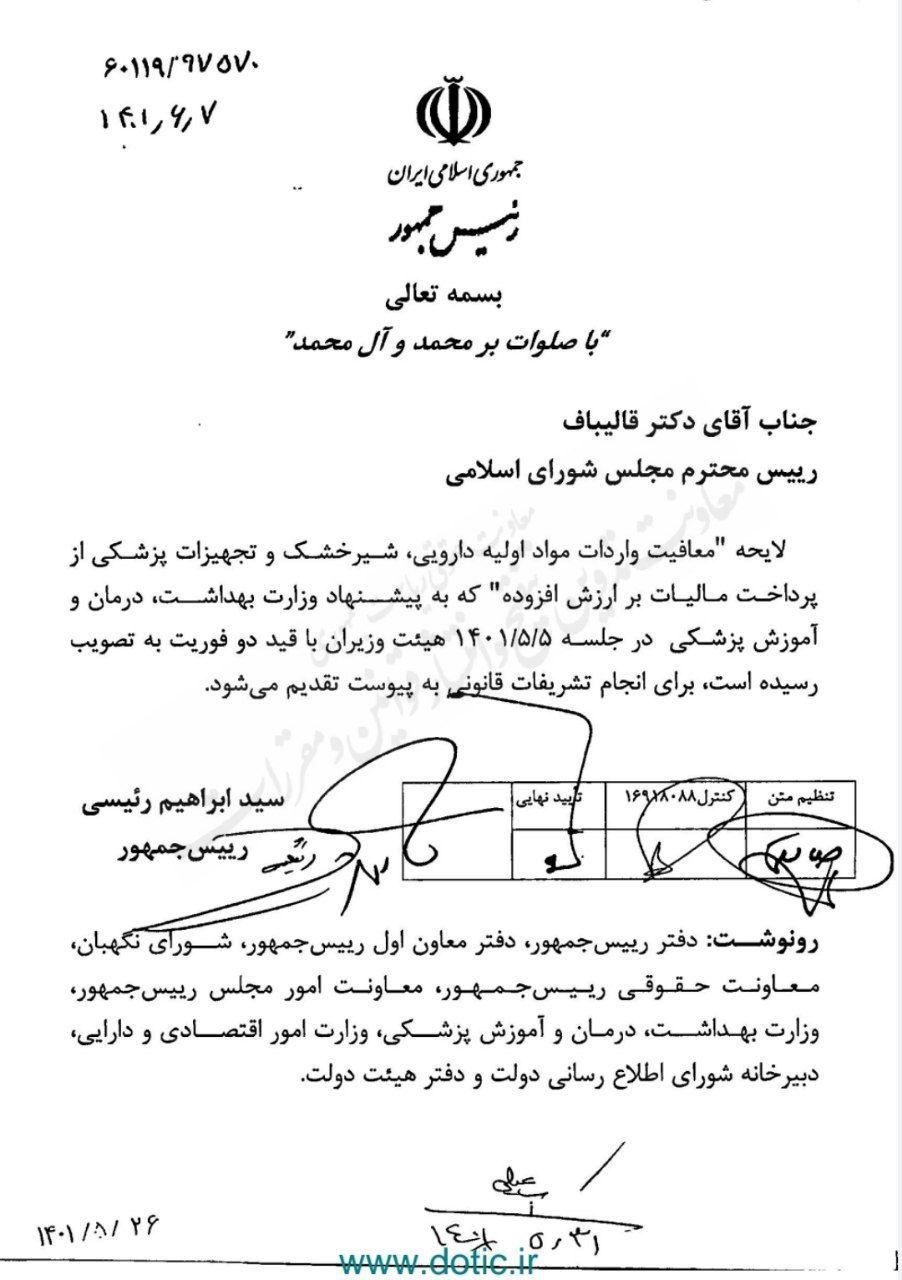 ۶۰۱۱۹/۹۷۵۷۰
۱۴۰۱٫۶٫۷
جمهوری اسلامی ایران
رئیس جمهور
بسمه تعالی
"با صلوات بر محمد و آل محمد"
جناب آقای دکتر قالیباف
رییس محترم مجلس شورای اسلامی
لایحه "معافیت واردات مواد اولیه دارویی، شیرخشک و تجهیزات پزشکی از
پرداخت مالیات بر ارزش افزوده" که به پیشنهاد وزارت بهداشت، درمان و
آموزش پزشکی در جلسه ۱۴۰۱/۵/۵ هیئت وزیران با قید دو فوریت به تصویب
رسیده است، برای انجام تشریفات قانونی به پیوست تقدیم می‌شود.
سید ابراهیم رئیسی
رییس‌جمهور
تنظیم متن کنترل ۱۶۹۱۸۰۸۸ تایید نهایی
رونوشت: دفتر رییس‌جمهور، دفتر معاون اول رییس‌جمهور، شورای نگهبان،
معاونت حقوقی رییس‌جمهور، معاونت امور مجلس رییس‌جمهور،
وزارت بهداشت، درمان و آموزش پزشکی، وزارت امور اقتصادی و دارایی،
دبیرخانه شورای اطلاع رسانی دولت و دفتر هیئت دولت.
۱۴۰۱/۸/۲۶
www.dotic.ir